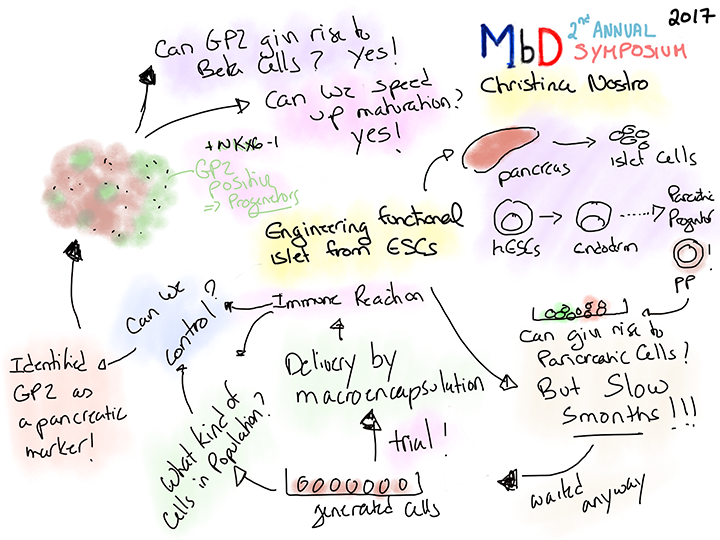 2017
MbD 2nd ANNUAL
SYMPOSIUM
Christina Nostro
pancreas
islet cells
hESCs
Endoderm
Pancreatic
Progenitor
PP
!
Can give rise to
Pancreatic Cells?
But Slow
5months!!!
waited
anyway
Engineering functional
islet from ESCs
Immune Reaction
Delivery by
macroencapsulation
trial!
generated cells
What kind of
cells in Population?
Can we
control?
Identified
GP2 as
a pancreatic
marker!
+NKx6-1
GP2
positive
⇒ Progenitors
Can GP2 give rise to
Beta Cells? Yes!
Can we speed
up maturation?
yes!